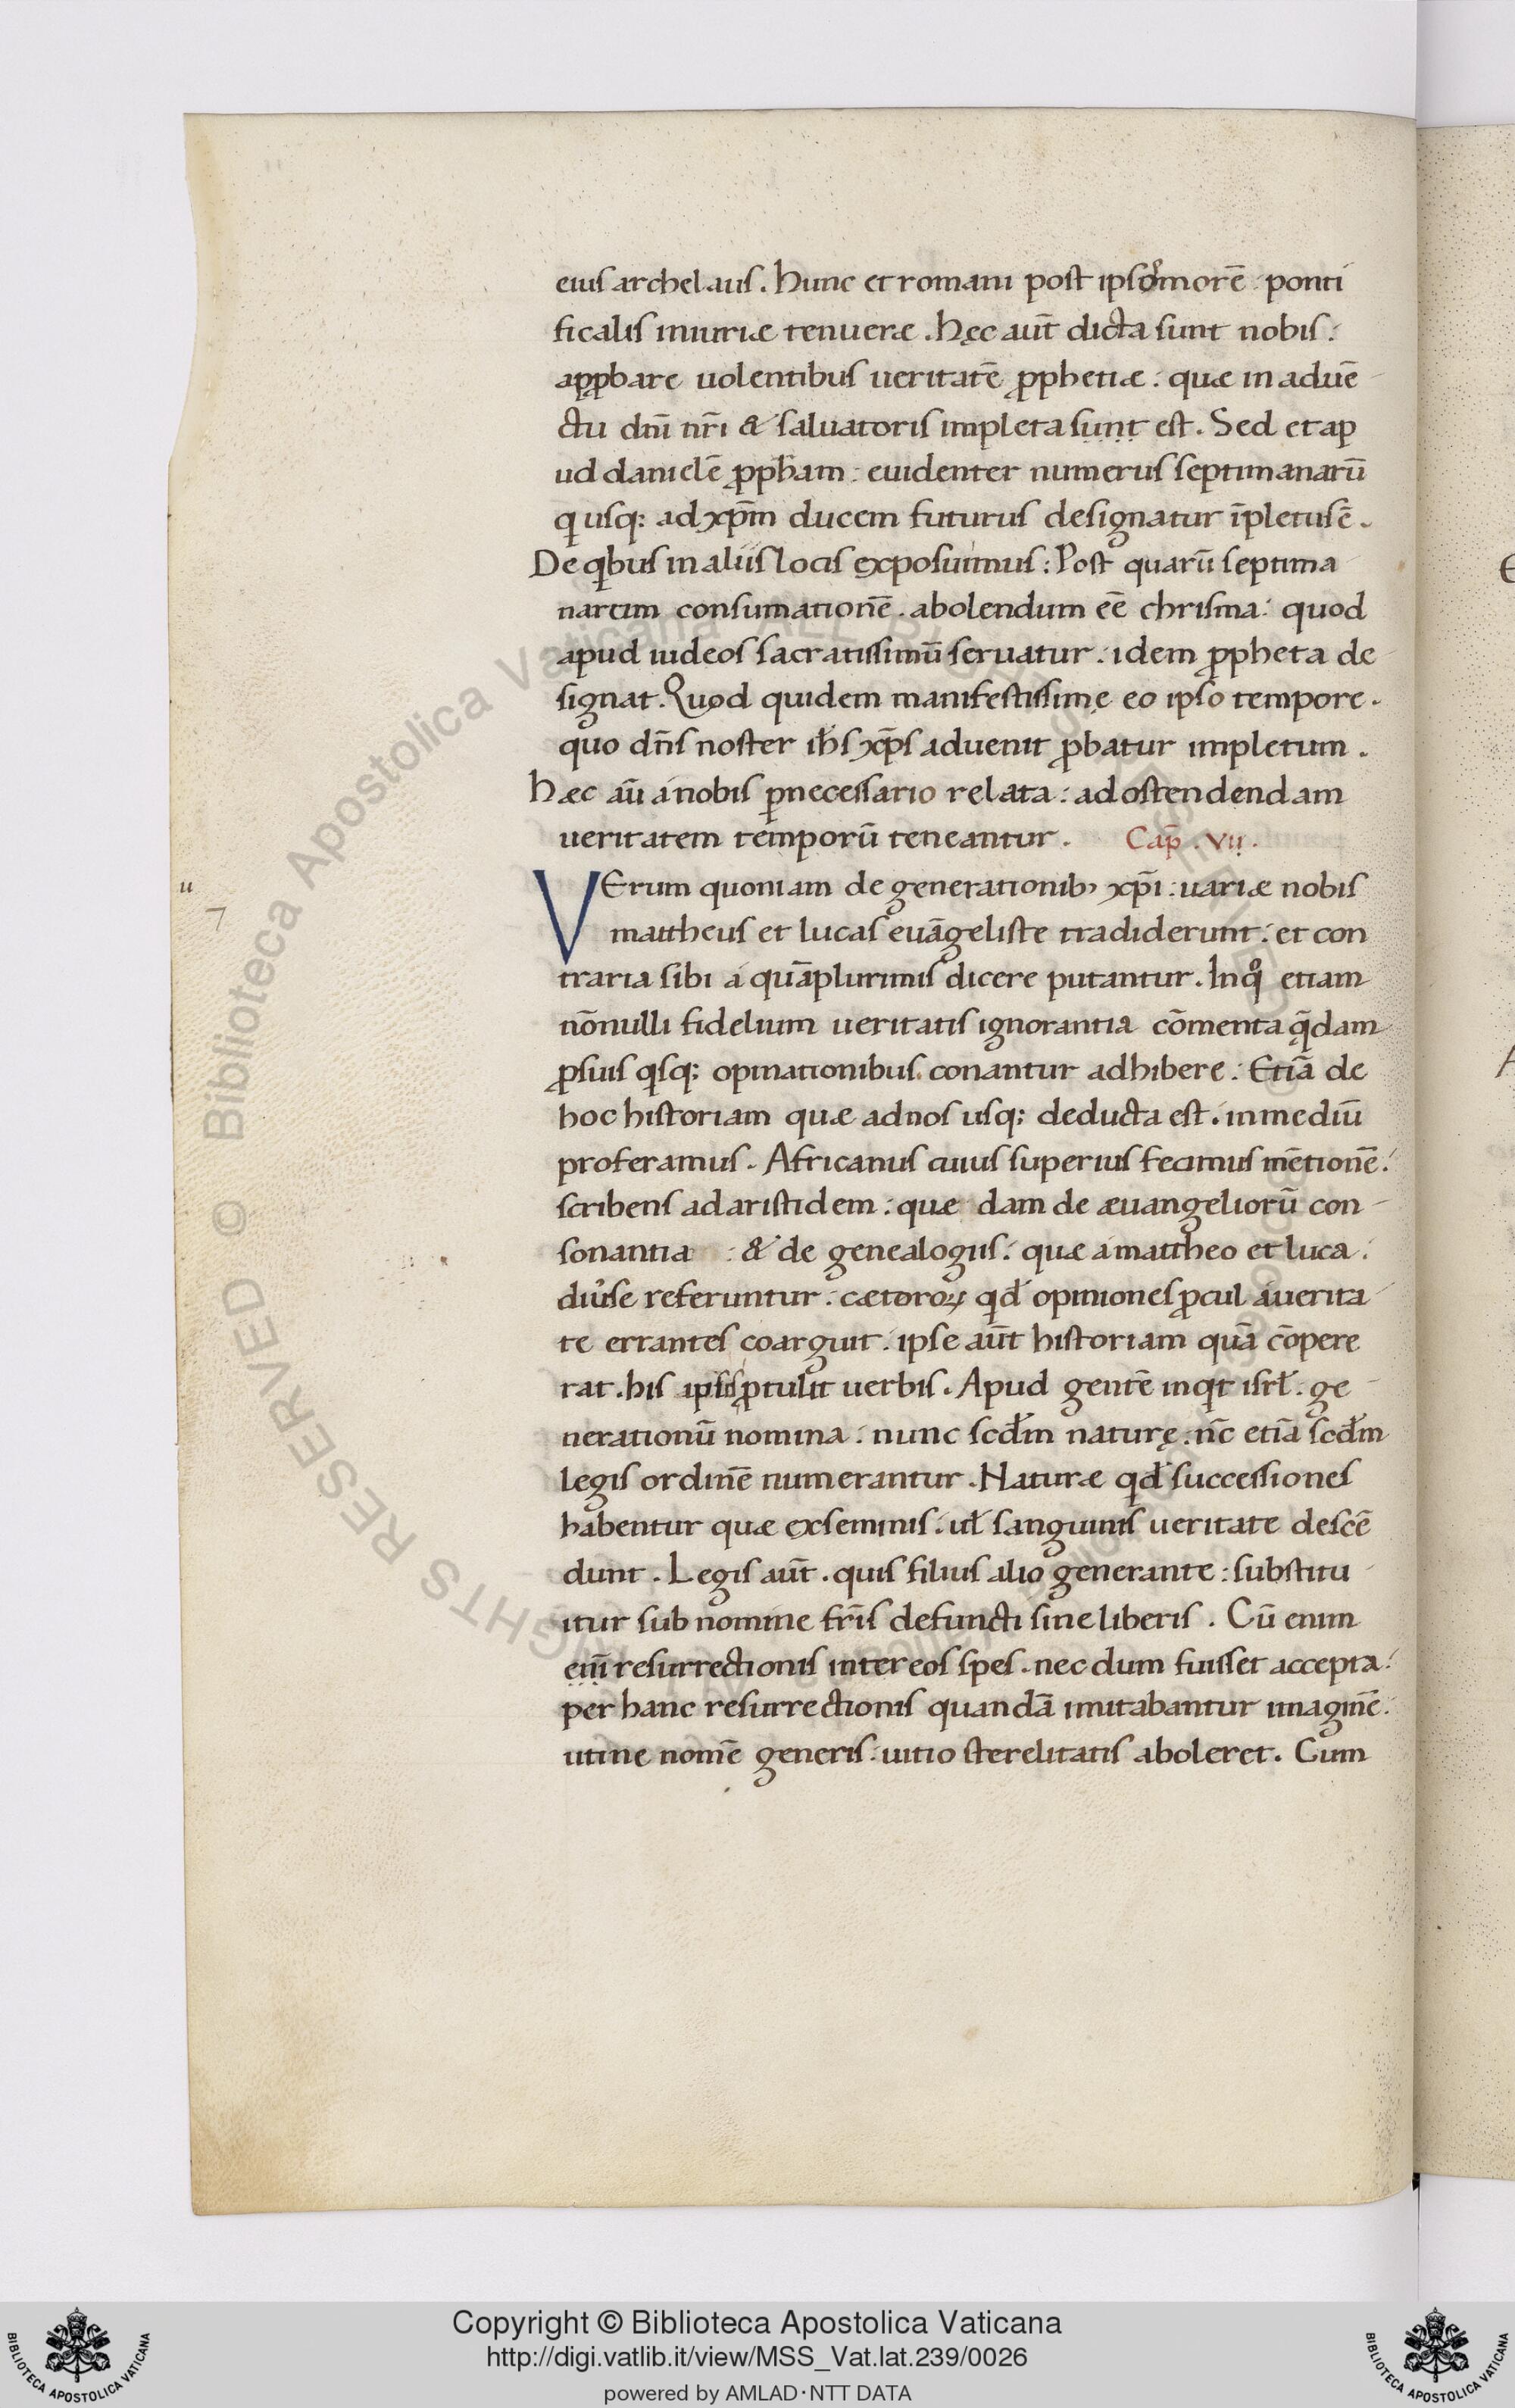 eius archelaus. hunc et romani post ipsoꝝ morē: ponti
ficalis iniuriæ tenueræ. hęc aūt dicta sunt nobis:
apꝓbare uolentibus ueritatē ꝓphetiæ: quæ in aduē
ctu dn̄i nr̄i & saluatoris impleta sunt est. Sed et ap
ud danielē ꝓph̄am: euidenter numerus septimanarū
q usq: ad xp̄m ducem futurus designatur īpletus ē.
De qibus in aliis locis exposuimus: Post quarū septima
narum consumationē. abolendum eē chrisma: quod
apud iudeos sacratissimū seruatur: idem ꝓpheta de
signat. Quod quidem manifestissime eo ipso tempore.
quo dn̄s noster ih̄s xp̄s aduenit ꝓbatur impletum.
hæc aū a nobis ꝑnecessario relata: ad ostendendam
ueritatem temporū teneantur. Cap̄. VII.
u
7
VErum quoniam de generationib; xp̄i: uariæ nobis
mattheus et lucas euāgeliste tradiderunt: et con
traria sibi a quāplurimis dicere putantur. In qͦ etiam
nōnulli fidelium ueritatis ignorantia cōmenta q̨̄dam
ꝓ suis qisq; opinationibus conantur adhibere: Etiā de
hoc historiam quæ ad nos usq; deducta est. in mediū
proferamus. Africanus cuius superius fecimus mētionē:
scribens ad aristidem: quæ dam de æuangeliorū con
sonantia : & de genealogiis: quæ a mattheo et luca:
diu̓se referuntur: cætoroꝝ qid̄ opiniones ꝓcul a uerita
te errantes coarguit: ipse aūt historiam quā cōpere
rat. his ipsis ꝓtulit uerbis. Apud gentē inqit isrl̄: ge
nerationū nomina: nunc scd̄m naturę: nc̄ etiā scd̄m
legis ordinē numerantur. Naturæ qid̄ successiones
habentur quæ ex seminis: ul̄ sanguinis ueritate descē
dunt. Legis aūt. quis filius alio generante: substitu
itur sub nomine fr̄is defuncti sine liberis. Cū enim
eni͞ resurrectionis inter eos spes. nec dum fuisset accepta:
per hanc resurrectionis quandā imitabantur imaginē:
utine nomē generis: uitio sterelitatis aboleret. Cum
Copyright © Biblioteca Apostolica Vaticana
http://digi.vatlib.it/view/MSS_Vat.lat.239/0026
powered by AMLAD·NTT DATA